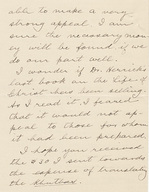 able to make a very
strong appeal I am
sure the neassary mon
ey will be found, if we
do our part well.
I wonder if Dr. Herricks
last book on the life of
Christ have been selling.
As I read it I feared
that it would not ap-
peal to those for whom
it had been prepared.
I hope you received
the $30 I sent towards
the expense of translating
the